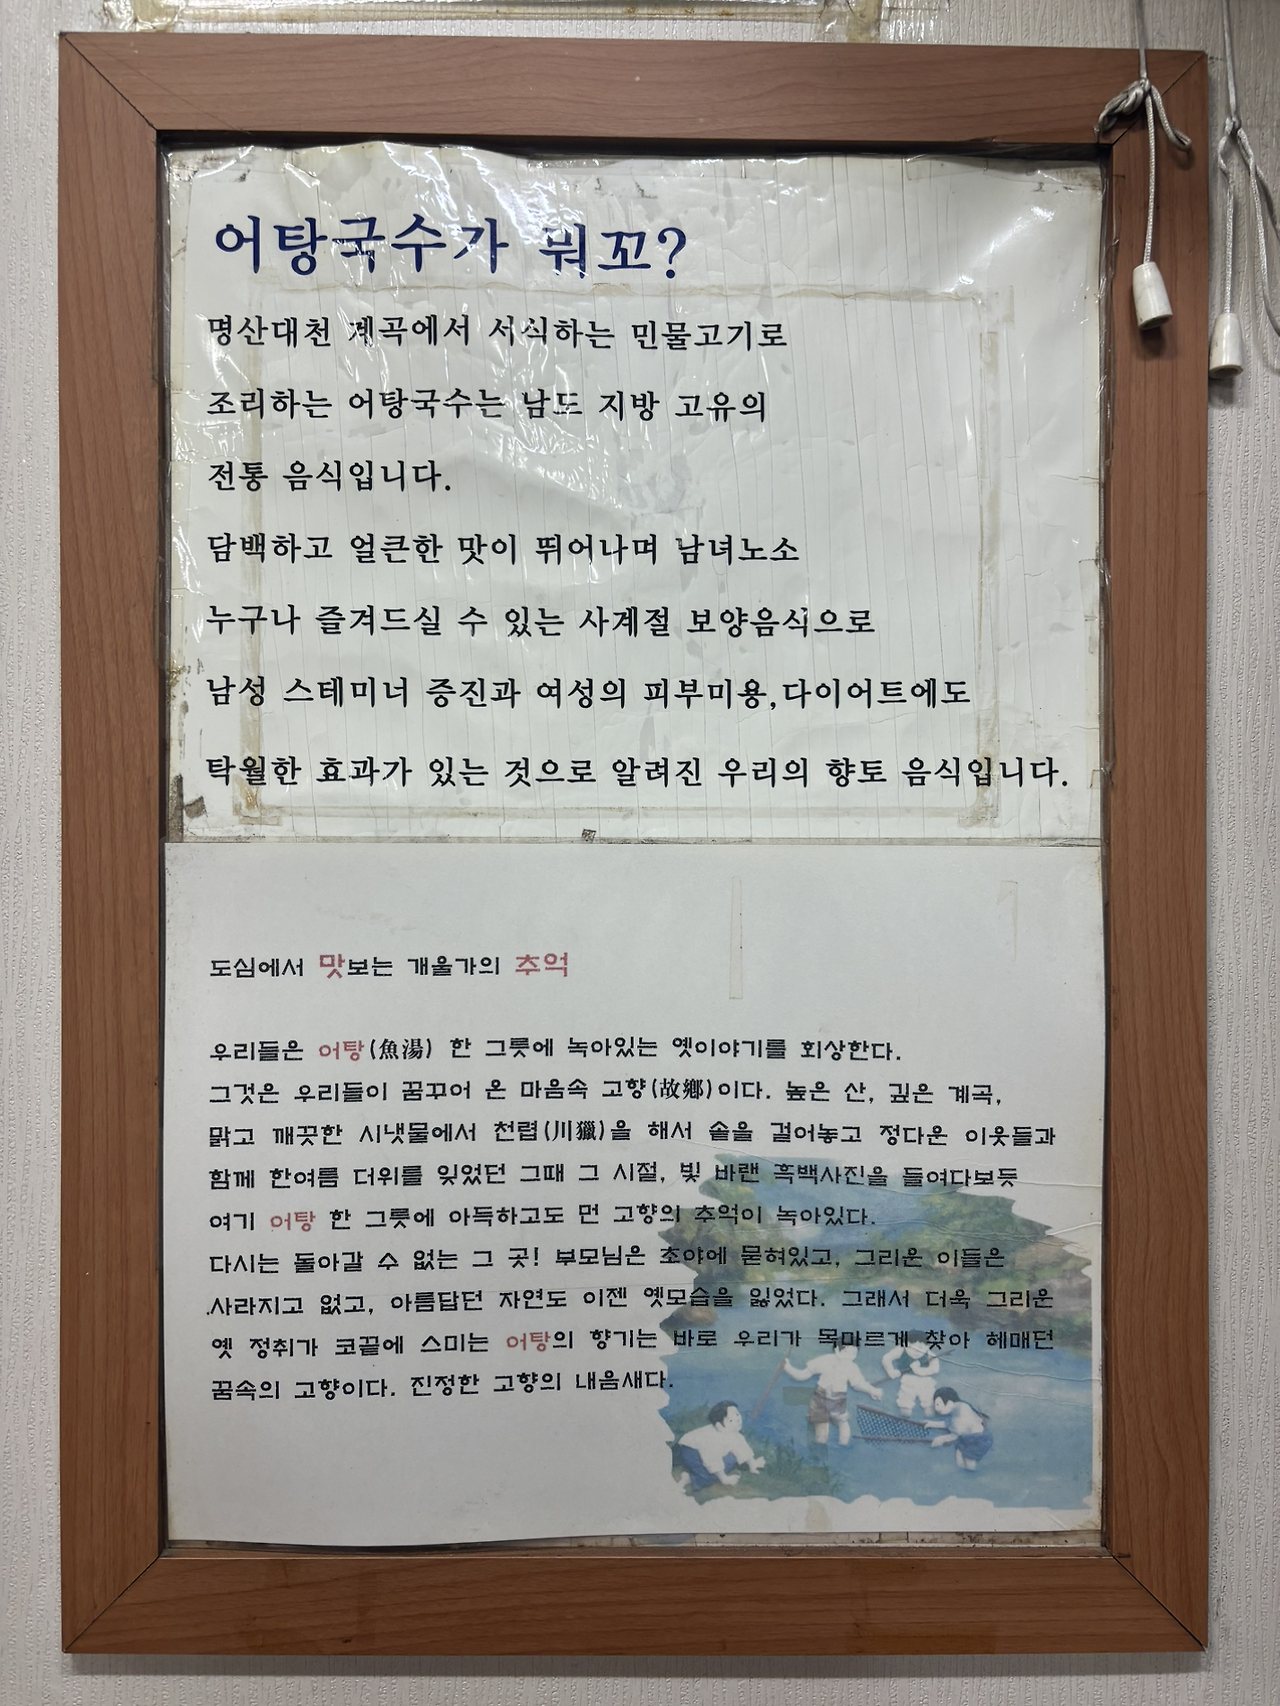 어탕국수가 뭐꼬?
명산대천 계곡에서 서식하는 민물고기로
조리하는 어탕국수는 남도 지방 고유의
전통 음식입니다.
담백하고 얼큰한 맛이 뛰어나며 남녀노소
누구나 즐겨드실 수 있는 사계절 보양음식으로
남성 스테미너 증진과 여성의 피부미용,다이어트에도
탁월한 효과가 있는 것으로 알려진 우리의 향토 음식입니다.
도심에서 맛보는 개울가의 추억
우리들은 어탕(魚湯) 한 그릇에 녹아있는 옛이야기를 회상한다.
그것은 우리들이 꿈꾸어 온 마음속 고향(故鄕)이다. 높은 산, 깊은 계곡,
맑고 깨끗한 시냇물에서 천렵(川獵)을 해서 솥을 걸어놓고 정다운 이웃들과
함께 한여름 더위를 잊었던 그때 그 시절, 빛 바랜 흑백사진을 들여다보듯
여기 어탕 한 그릇에 아득하고도 먼 고향의 추억이 녹아있다.
다시는 돌아갈 수 없는 그 곳! 부모님은 초야에 묻혀있고, 그리운 이들은
사라지고 없고, 아름답던 자연도 이젠 옛모습을 잃었다. 그래서 더욱 그리운
옛 정취가 코끝에 스미는 어탕의 향기는 바로 우리가 목마르게 찾아 헤매던
꿈속의 고향이다. 진정한 고향의 내음새다.